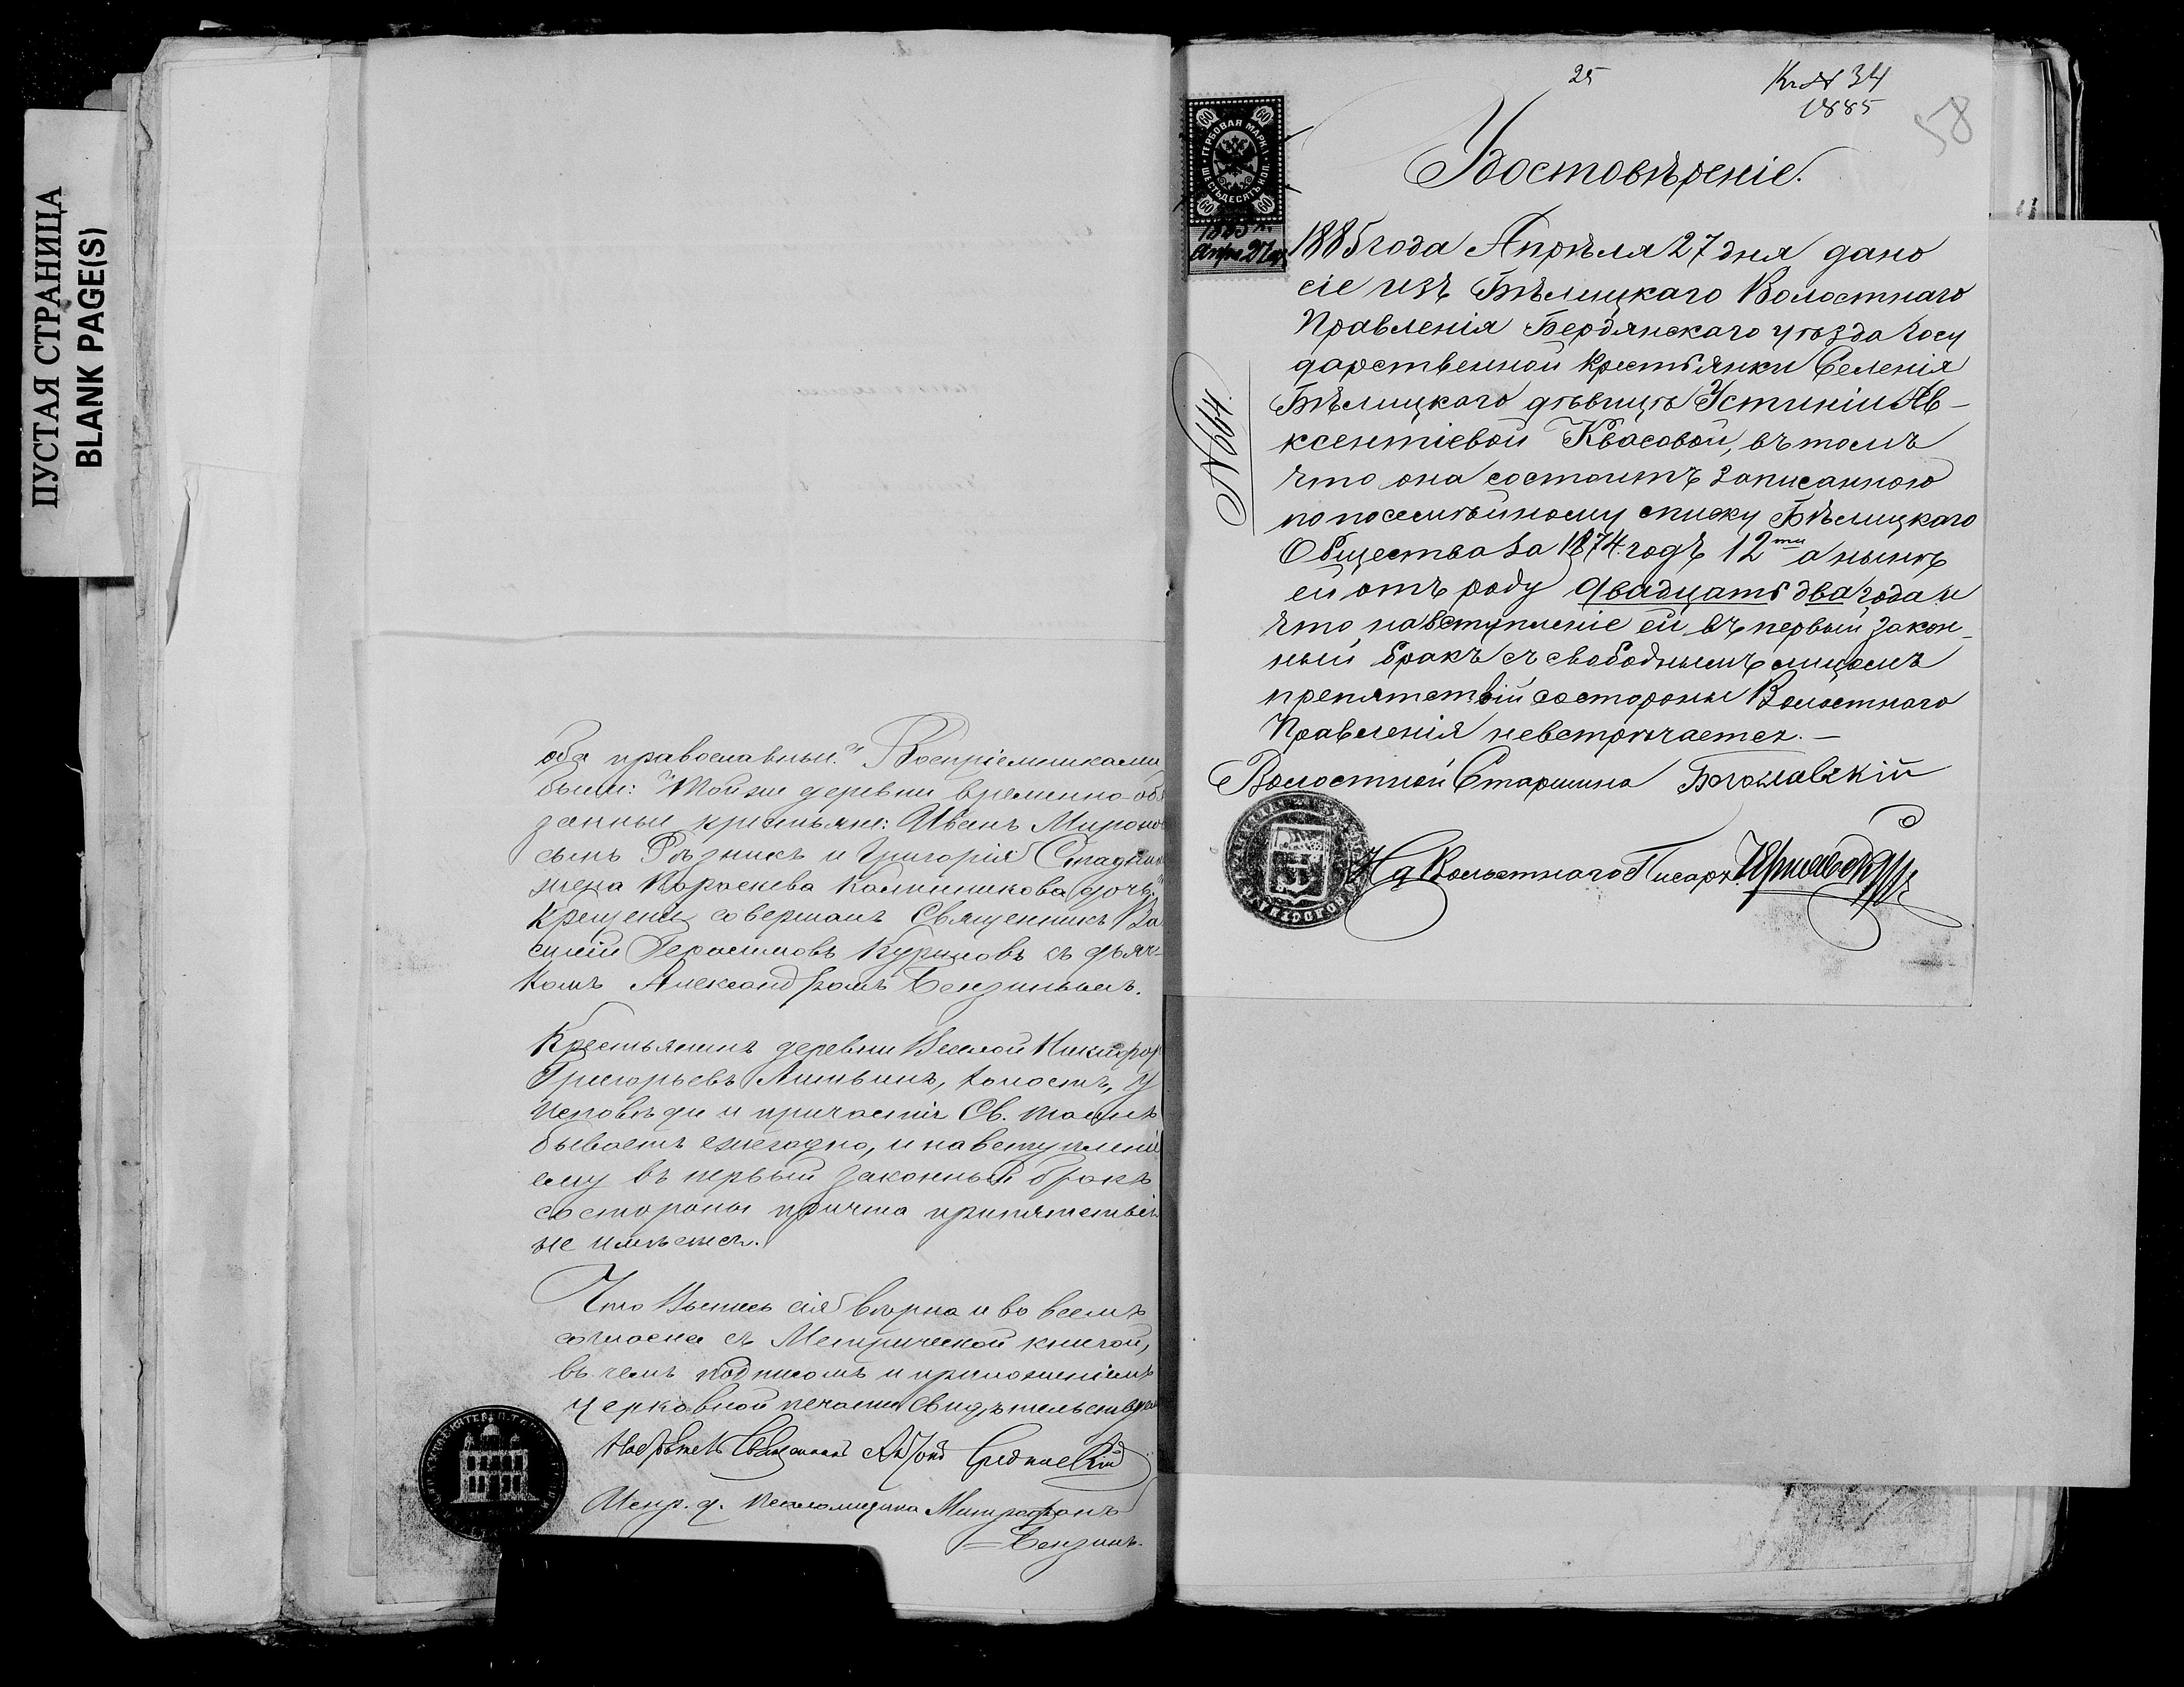 ПУСТАЯ СТРАНИЦА
BLANK PAGE(S)
оба православныи." Воспріемниками
были: "Тойже деревни временно-обя
занныи крестьяне: Иванъ Миронов
сынъ Рѣзникъ и Григорія
жена Параскева Калинникова дочь."
Крещені совершалъ Священникъ Ва
силій Герасимовъ Куриловъ съ дьяч-
комъ Александромъ Бензинымъ.
Крестьянинъ деревни Веселой Никифор
Григорьевъ Литвинъ, холостъ, у
Исповѣди и причастія Св. Таинъ
бываетъ ежегодно, и на вступлені
ему въ первый законный бракъ
со стороны причта припятствій
не имѣется.
Что Выпись сія вѣрна и во всемъ
согласна съ Метрической книгой,
въ чемъ подписомъ и приложеніемъ
церковной печати свидѣтельству
Священникъ
Испр. д. псаломщика Митрофанъ
Бензинъ.
25
Кп № 34
1885
58
ГЕРБОВАЯ МАРКА
ШЕСТЬДЕСЯТЪ КОП.
60 60 60 60
1885 г.
Апре 27 д.
Удостовѣреніе.
№ 664.
1885 года Апрѣля 27 дня дано
сіе изъ Бѣлицкаго Волостнаго
Правленія Бердянскаго уѣзда Госу
дарственной крестьянки Селенія
Бѣлицкаго дѣвицѣ Устиніи Ав-
ксентіевой Квасовой, въ томъ
что она состоитъ записанною
по посемѣйному списку Бѣлицкаго
Общества за 1874 годъ 12ти а нынѣ
ей отъ роду двадцать два года и
что на вступленіе ей въ первый закон-
ный бракъ съ свободнымъ лицомъ
препятствій со стороны Волостнаго
Правленія невстрѣчается.-
Волостной Старшина
За Волостнаго Писаря